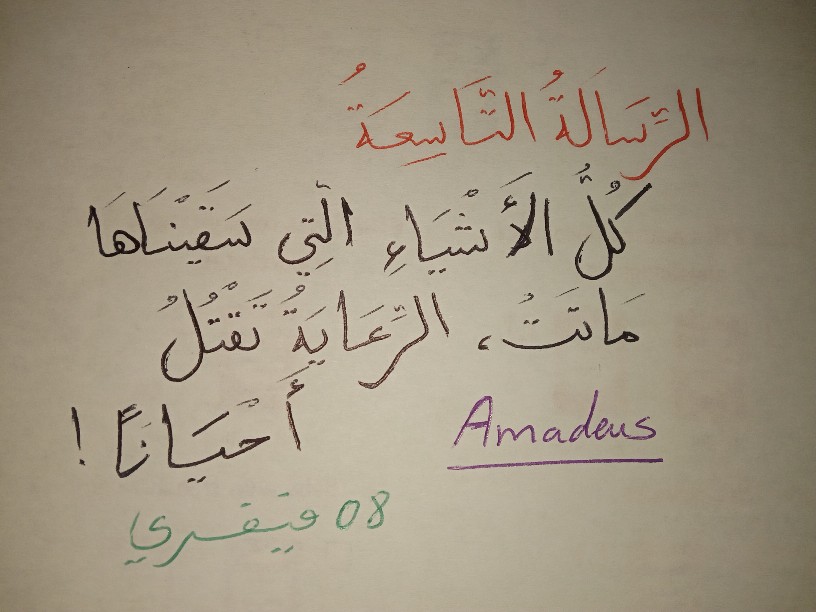 الرَّسَالَةُ التَّاسِعَةُ
كُلُّ الأَشْيَاءِ الَّتِي سَقَيْنَاهَا
مَاتَتْ، الرَّعَايَةُ تَقْتُلُ
أَحْيَانًا!
Amadeus
08 فيفري